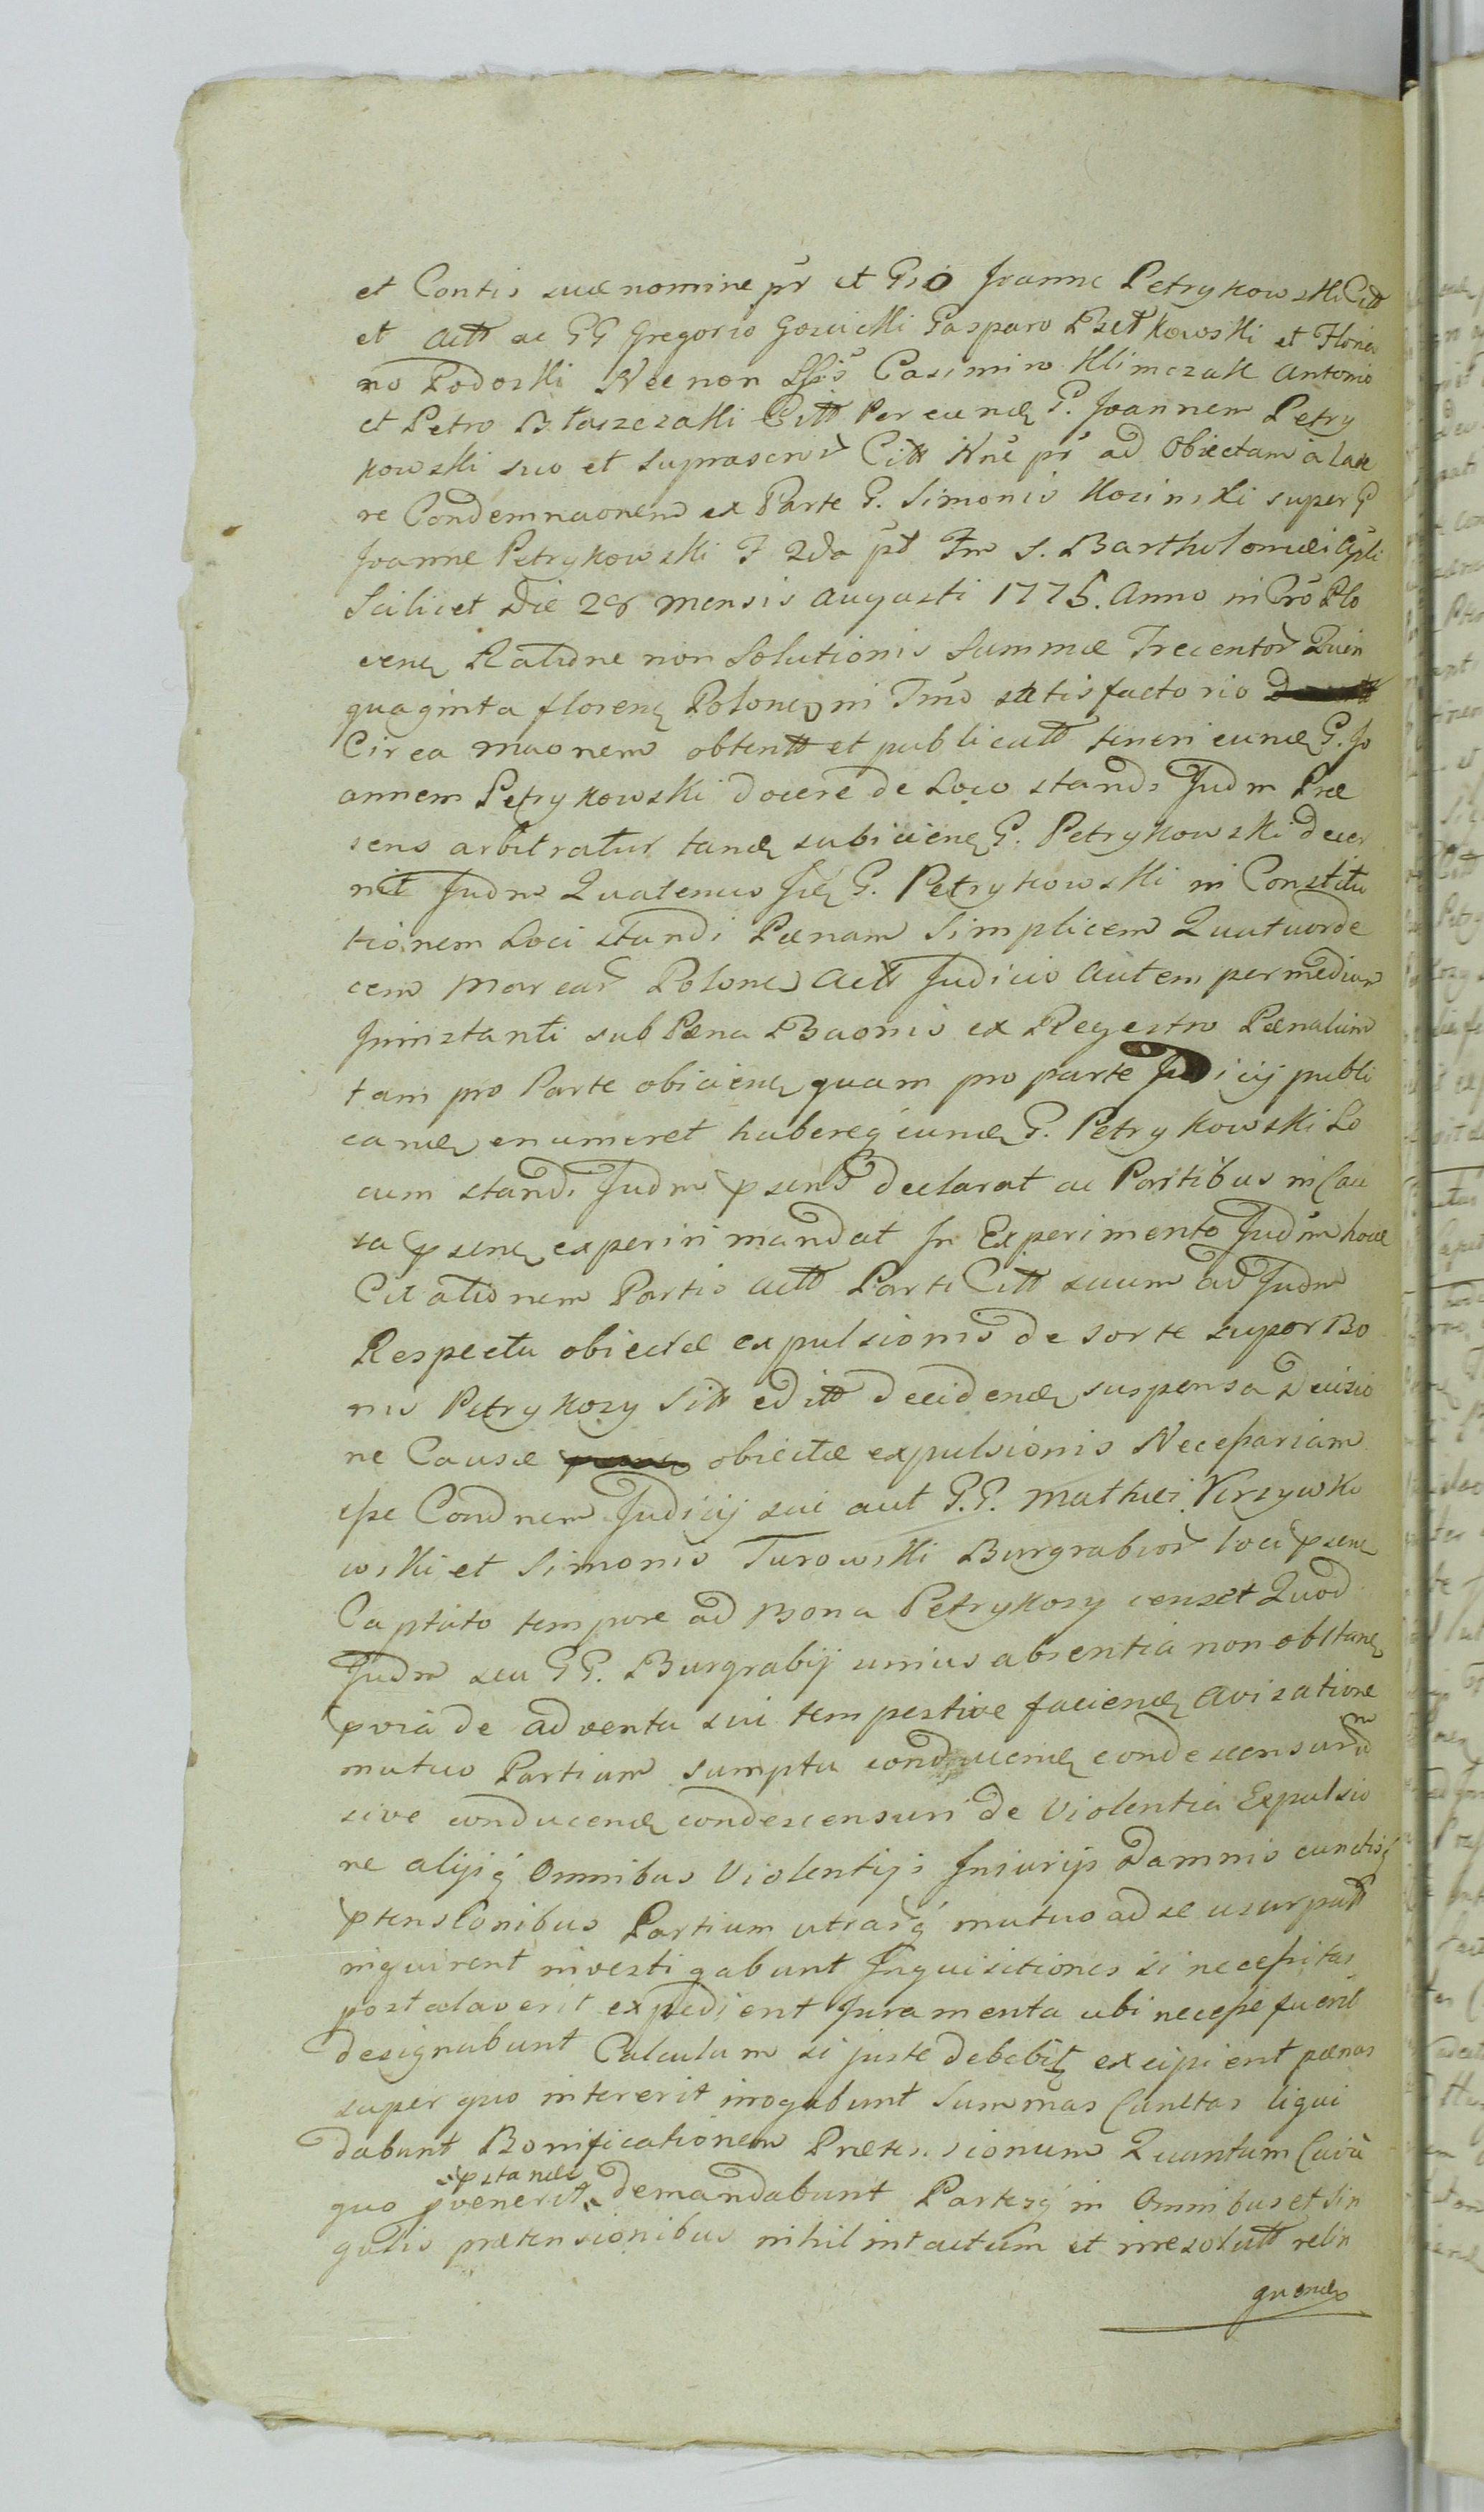 et Contis suæ nomine pr et Gso Joanne Petrykowski Citt
et Actt ac GG Gregorio Goscicki Gasparo Pzetkowski et Floria
no Podoski Nec non Casimiro Klimczak Antonio
et Petro Błaszczakki Citt Per eund G. Joannem Petry
kowski suo et suprascri Citt Nne pr ad Obiectam a late
re Condemnaonem ex Parte G. Simonis Kosinski super G
Joanne Petrykowski F 2da pt Fm S. Bartholomæi Apli
Scilicet Die 28 mensis Augusti 1775. Anno in Cro Plo
cen Ratione non Solutionis Summæ Trecentor Quin
quaginta floren Polonc in Tmo satisfactorio
Circa maonem obtentt et publicatt teneri eund G. Jo
annem Petrykowski docere de Loco standi Judm Præ
sens arbitratur tand subiicien G. Petrykowski decer
nit Judm Quatenus G. Petrykowski in Constitu
tionem Loci standi Pænam Simplicem Quatuorde
cem Marcar Polonc Actt Judicio autem per mediam
Ininstanti sub Pæna Baonis ex Regestro Pænalium
tam pro Parte obiicien quam pro parte Judicij publi
cand enumeret habereq eund G. Petrykowski Lo
cum standi Judm psens declarat ac Partibus in Cau
sa psen experiri mandat In Experimento Judm hocce
Citationem Partis Actt Parti Citt suum ad Judm
Respectu obiectæ expulsionis de sorte super Bo
nis Petrykozy Sitt editt decidend suspensa Decisio
ne Causæ obiectæ expulsionis Necessariam
esse Condnem Judicij sui aut G.G. Mathiei
wski et Simonis Turowski Burgrabior loci psen
Captato tempore ad Bona Petrykozy censet Quod
Judm seu GG. Burgrabij unius absentia non obstan
pvia de adventu sui tempestive faciend avisatione
mutuo Partium sumptu conducend condescensurum
sive conducend condescensuri de Violentia Expulsio
ne alijsq Omnibus Violentijs Injurijs Damnis cunctisq
ptensionibus Partium utrarq mutuo ad se usurpatt
inquirent investigabunt Inquisitiones si necessitas
postulaverit expedient Juramenta ubi necesse fuerit
designabunt Calculum si juste debebit excipient pænas
super quo intererit irrogabunt Summas Cunctas liqui
dabunt Bonificationem Prætensionum Quantum Cui
pstand
quo pvenerit demandabunt Partesq in Omnibus et sin
gulis prætensionibus nihil intactum et irresolutt relin
quend